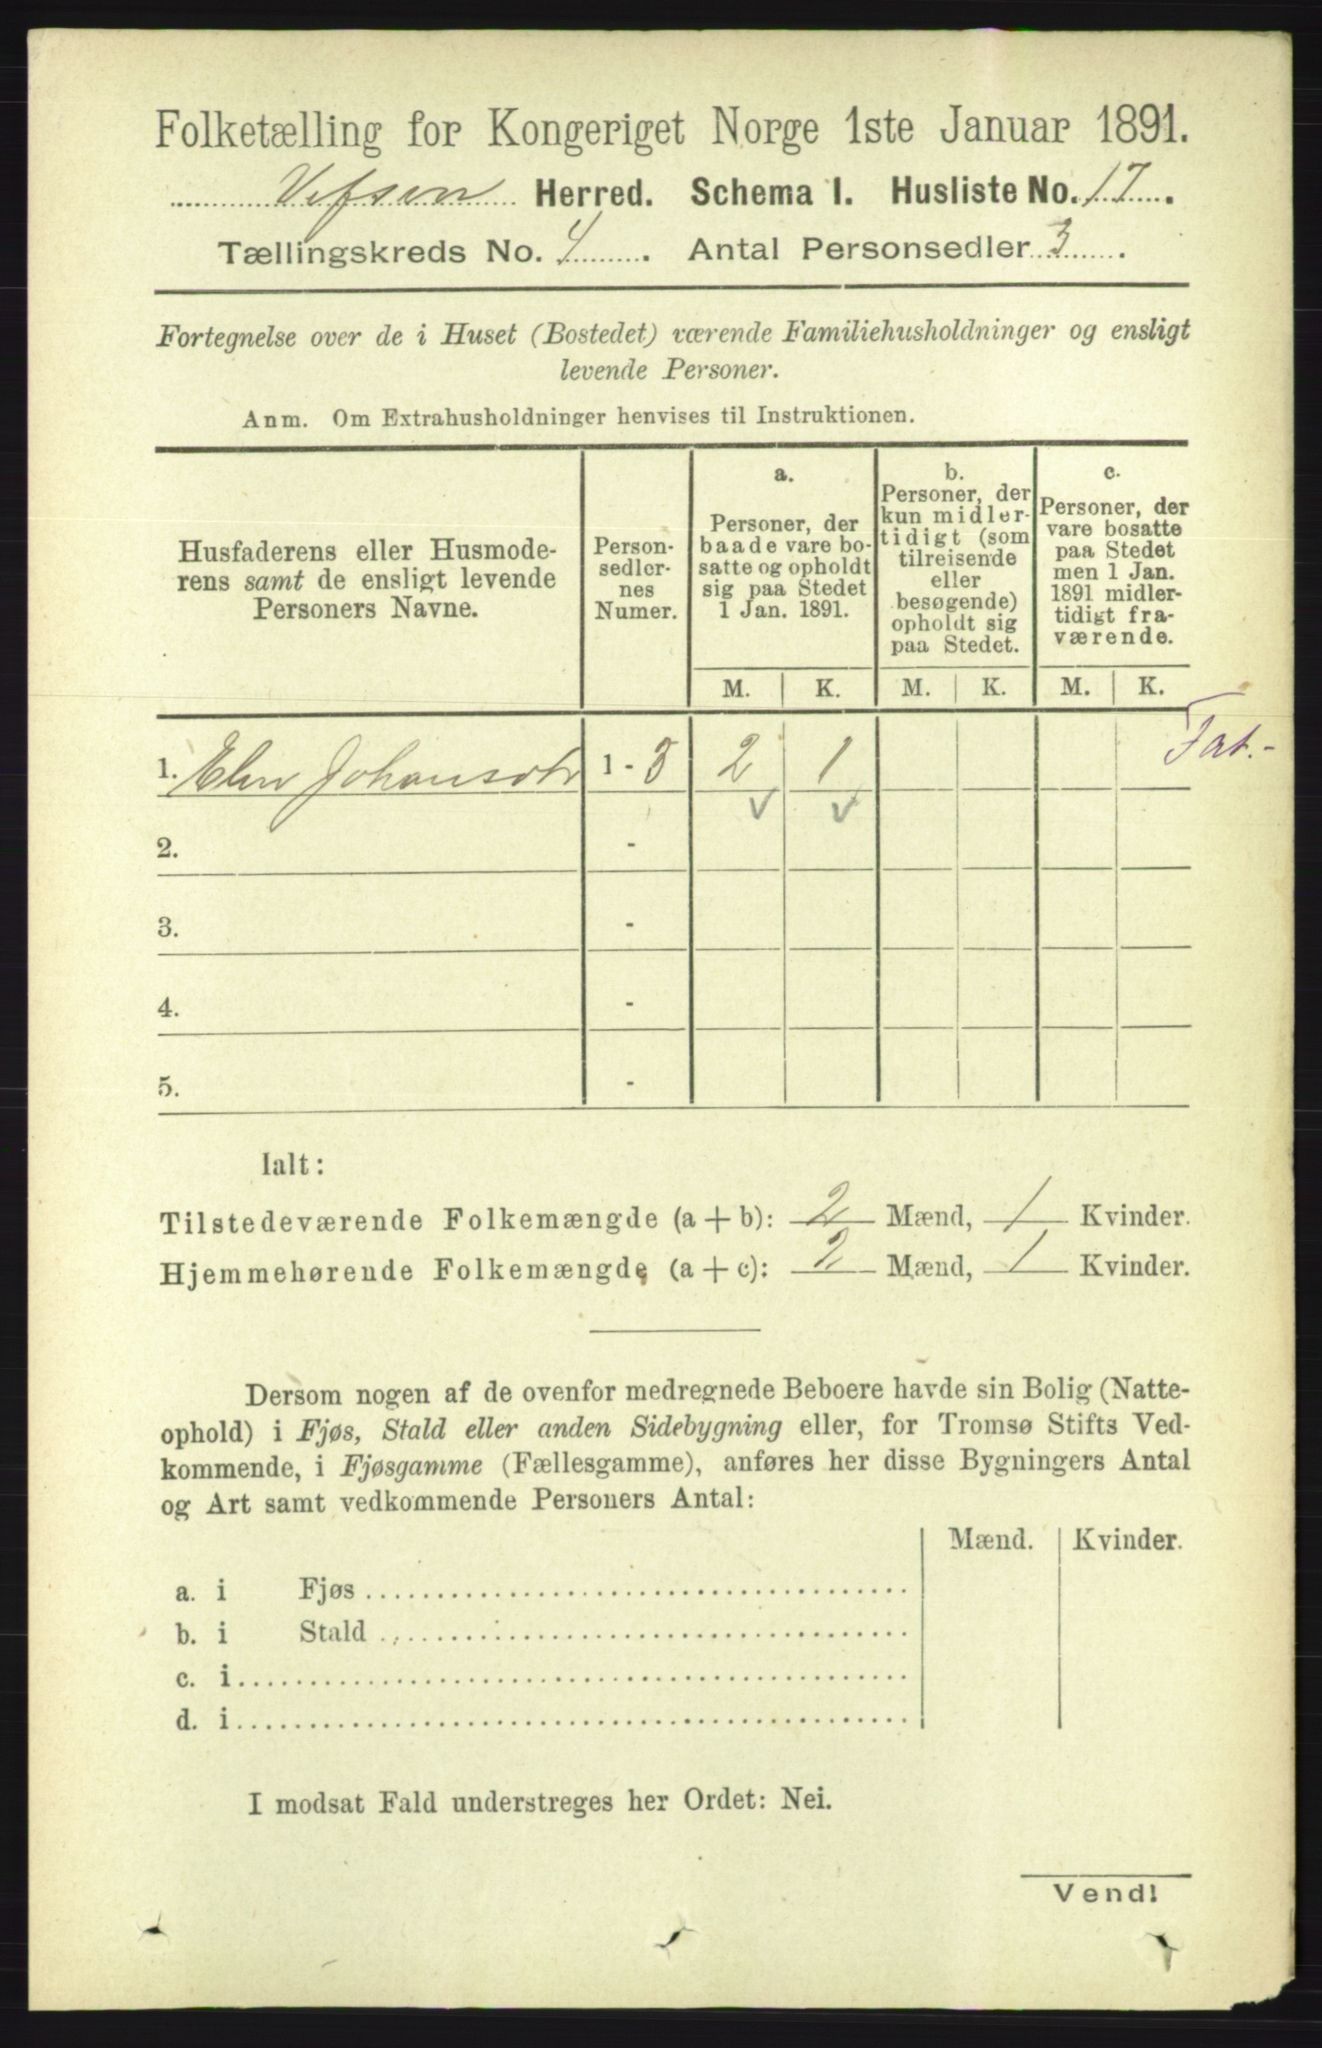 Folketælling for Kongeriget Norge 1ste Januar 1891.
Vefsen Herred. Schema I. Husliste No. 17.
Tællingskreds No. 4. Antal Personsedler 3.
Fortegnelse over de i Huset (Bostedet) værende Familiehusholdninger og ensligt
levende Personer.
Anm. Om Extrahusholdninger henvises til Instruktionen.
Husfaderens eller Husmode-
rens samt de ensligt levende
Personers Navne.
Person-
sedler-
nes
Numer.
a.
Personer, der
baade vare bo-
satte og opholdt
sig paa Stedet
1 Jan. 1891.
b.
Personer, der
kun midler-
tidigt (som
tilreisende
eller
besøgende)
opholdt sig
paa Stedet.
c.
Personer, der
vare bosatte
paa Stedet
men 1 Jan.
1891 midler-
tidigt fra-
værende.
M. K. M. K. M. K.
1. Elen Johansdtr 1 - 3 2 1
2. -
3. -
4. -
5. -
Ialt:
Tilstedeværende Folkemængde (a + b): 2 Mænd, 1 Kvinder.
Hjemmehørende Folkemængde (a + c): 2 Mænd, 1 Kvinder.
Dersom nogen af de ovenfor medregnede Beboere havde sin Bolig (Natte-
ophold) i Fjøs, Stald eller anden Sidebygning eller, for Tromsø Stifts Ved-
kommende, i Fjøsgamme (Fællesgamme), anføres her disse Bygningers Antal
og Art samt vedkommende Personers Antal:
Mænd. Kvinder.
a. i Fjøs
b. i Stald
c. i
d. i
I modsat Fald understreges her Ordet: Nei.
Vend!